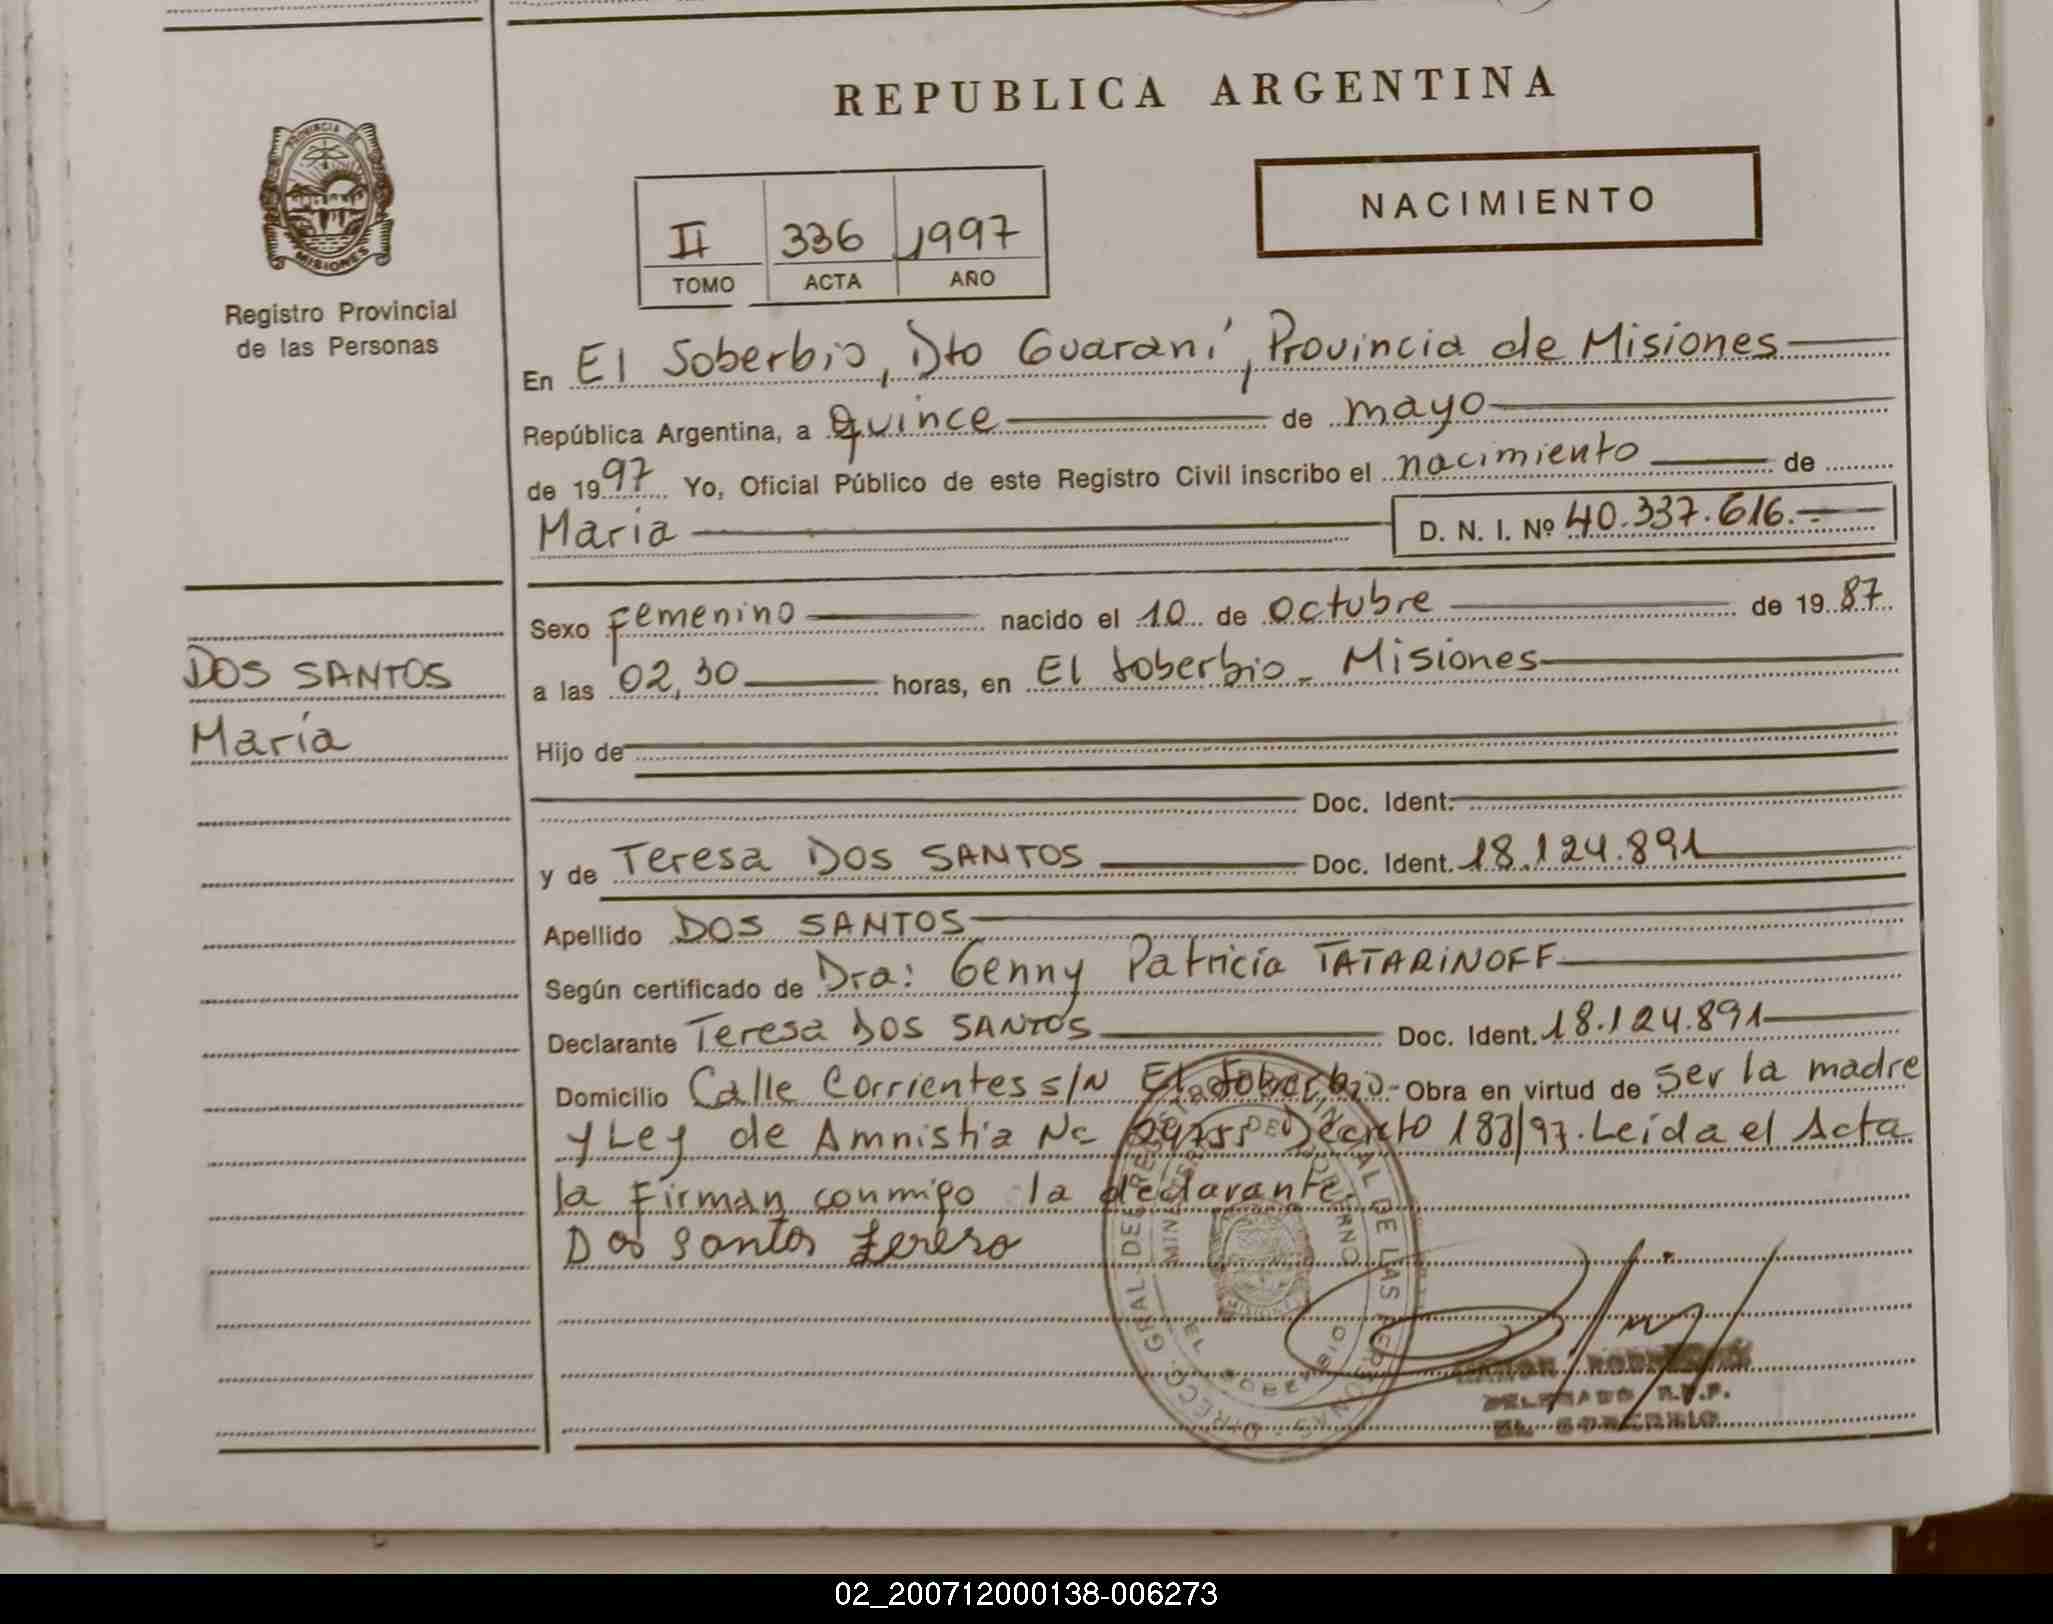 REPUBLICA ARGENTINA
NACIMIENTO
II 336 1997
TOMO ACTA AÑO
PROVINCIA DE MISIONES
Registro Provincial
de las Personas
En El Soberbio, Dto Guaraní, Provincia de Misiones
República Argentina, a quince de mayo
de 1997 Yo, Oficial Público de este Registro Civil inscribo el nacimiento de
Maria D. N. I. Nº 40.337.616.-
DOS SANTOS
María
Sexo Femenino nacido el 10 de octubre de 1987
a las 02,30 horas, en El Soberbio - Misiones
Hijo de
Doc. Ident.
y de Teresa DOS SANTOS Doc. Ident. 18.124.891
Apellido DOS SANTOS
Según certificado de Dra: Genny Patricia TATARINOFF
Declarante Teresa DOS SANTOS Doc. Ident. 18.124.891
Domicilio Calle Corrientes s/N El Soberbio- Obra en virtud de ser la madre
y Ley de Amnistia Nº Decreto 183/97. Leída el Acta
la Firman conmigo la declarante.
Dos Santos Teresa
DIRECC. GRAL. DEL REGISTRO PROVINCIAL DE LAS PERSONAS
MINISTERIO DE GOBIERNO
EL SOBERBIO
MISIONES
RAMON
DELEGADO R.P.P.
EL SOBERBIO
02_200712000138-006273